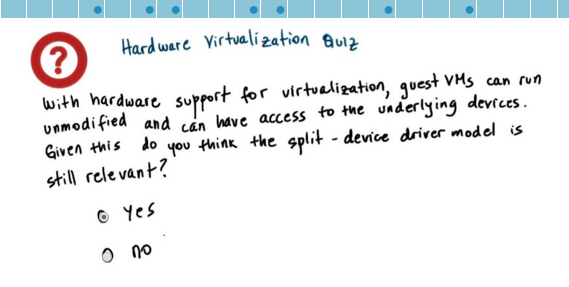 ?
Hardware Virtualization Quiz
With hardware support for virtualization, guest VMs can run
unmodified and can have access to the underlying devices.
Given this do you think the split-device driver model is
still relevant?
yes
no